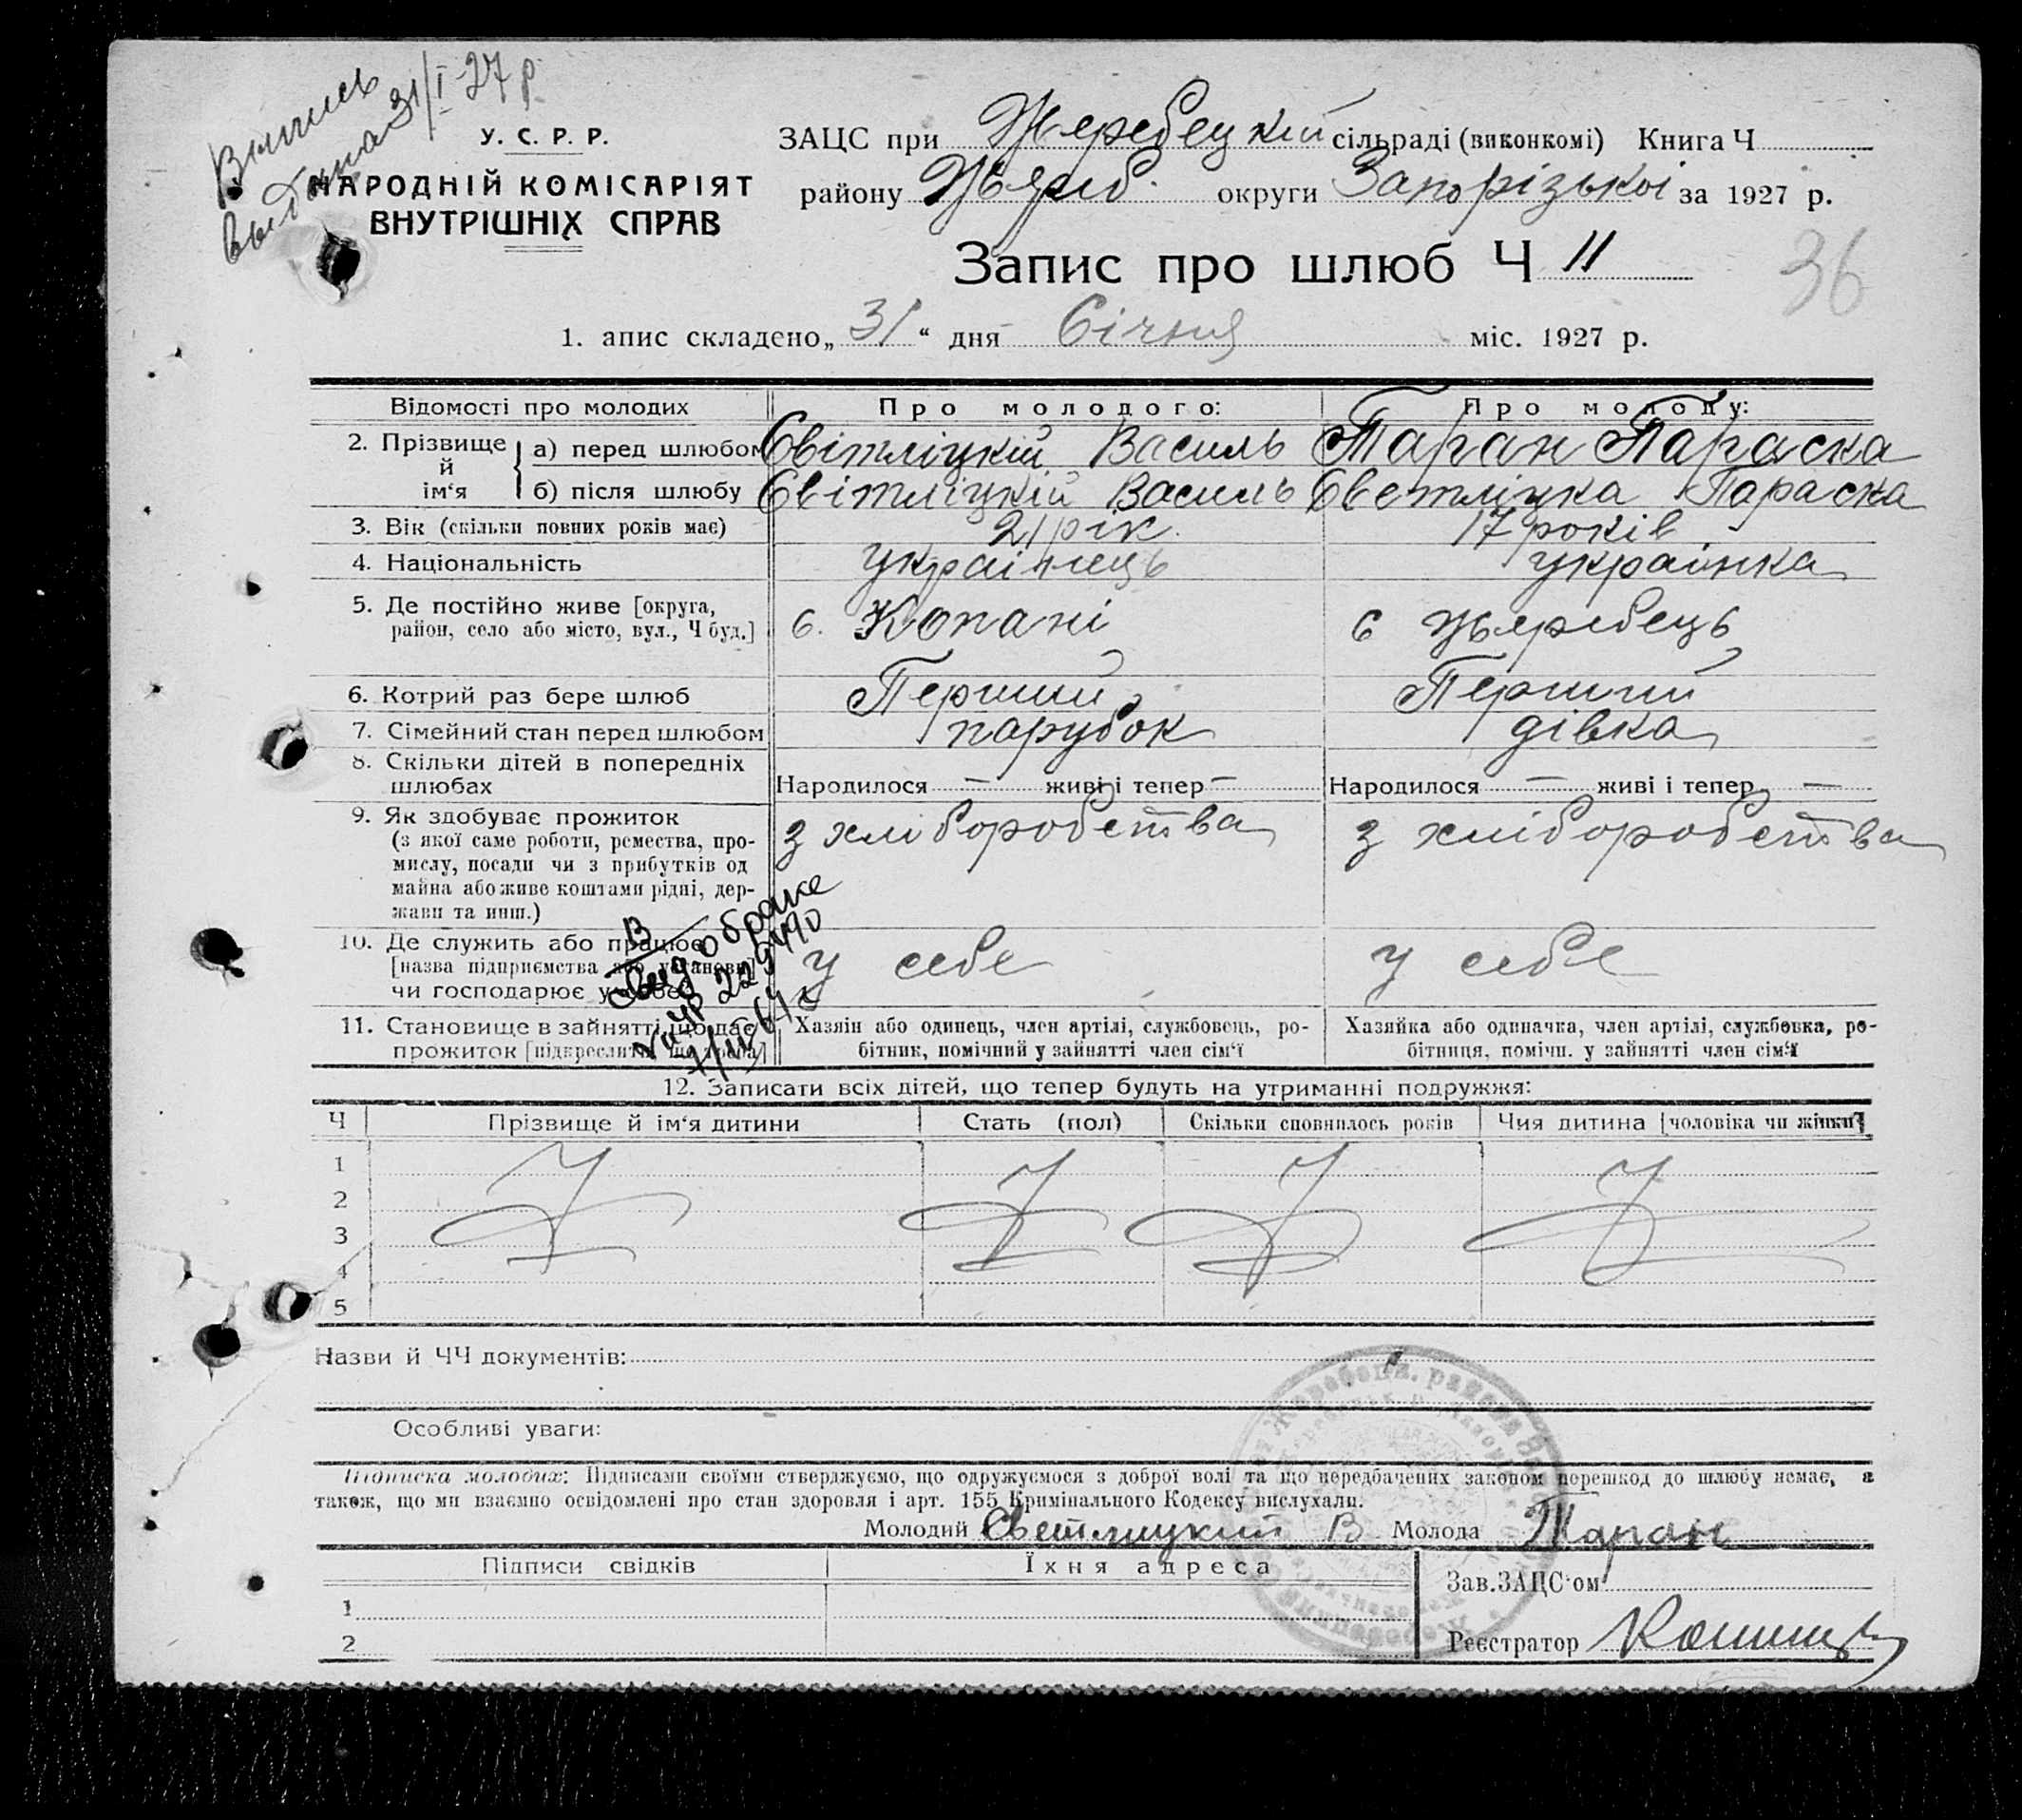 Выпись
выдана 31/I-27 р.
У. С. Р. Р.
НАРОДНІЙ КОМІСАРІЯТ
ВНУТРІШНІХ СПРАВ
ЗАЦС при Жеребецкій сільраді (виконкомі) Книга Ч
району Жереб. округи Запорізькоі за 1927 р.
Запис про шлюб Ч 11
36
1. апис складено „ 31 “ дня Січня міс. 1927 р.
Відомості про молодих Про молодого: Про молоду:
2. Прізвище й ім‘я
а) перед шлюбом Світліцкій Василь Таран Параска
б) після шлюбу Світліцкій Василь Светліцка Параска
3. Вік (скільки повних років має) 21 рік. 17 років
4. Національність украінець украінка
5. Де постійно живе [округа, с. Копані с Жеребець
район, село або місто, вул., Ч буд.]
6. Котрий раз бере шлюб Перший Перший
7. Сімейний стан перед шлюбом парубок дівка
8. Скільки дітей в попередніх
шлюбах Народилося — живі і тепер — Народилося — живі і тепер —
9. Як здобуває прожиток з хліборобства з хліборобства
(з якої саме роботи, ремества, про-
мислу, посади чи з прибутків од
майна або живе коштами рідні, дер-
жави та инш.)
10. Де служить або працює у себе у себе
[назва підприємства або установи]
чи господарює у себе
В
Свид. о браке
229490
11. Становище в зайнятті, що дає Хазяїн або одинець, член артілі, службовець, ро- Хазяйка або одиначка, член артілі, службовка, ро-
прожиток [підкреслити, що треба] бітник, помічний у зайнятті член сім‘ї бітниця, помічн. у зайнятті член сім‘ї
12. Записати всіх дітей, що тепер будуть на утриманні подружжя:
Ч Прізвище й ім‘я дитини Стать (пол) Скільки сповнилось років Чия дитина [чоловіка чи жінки]
1
2
3
4
5
Назви й ЧЧ документів:
Особливі уваги:
Підписка молодих: Підписами своїми стверджуємо, що одружуємося з доброї волі та що передбачених законом перешкод до шлюбу немає, а
також, що ми взаємно освідомлені про стан здоровля і арт. 155 Кримінального Кодексу вислухали.
Молодий Светлицкий В Молода Таран
Підписи свідків Їхня адреса
Зав. ЗАЦС‘ом
1
2
Реєстратор